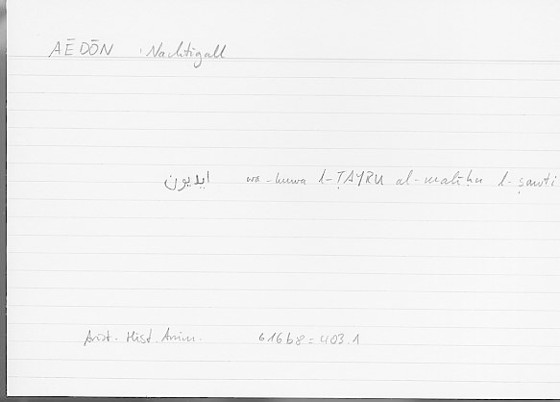 AĒDŌN : Nachtigall
ايديون wa-huwa l-ṬAYRU al-malīḥu l-ṣawti
Arist. Hist. Anim. 616b8 = 403.1